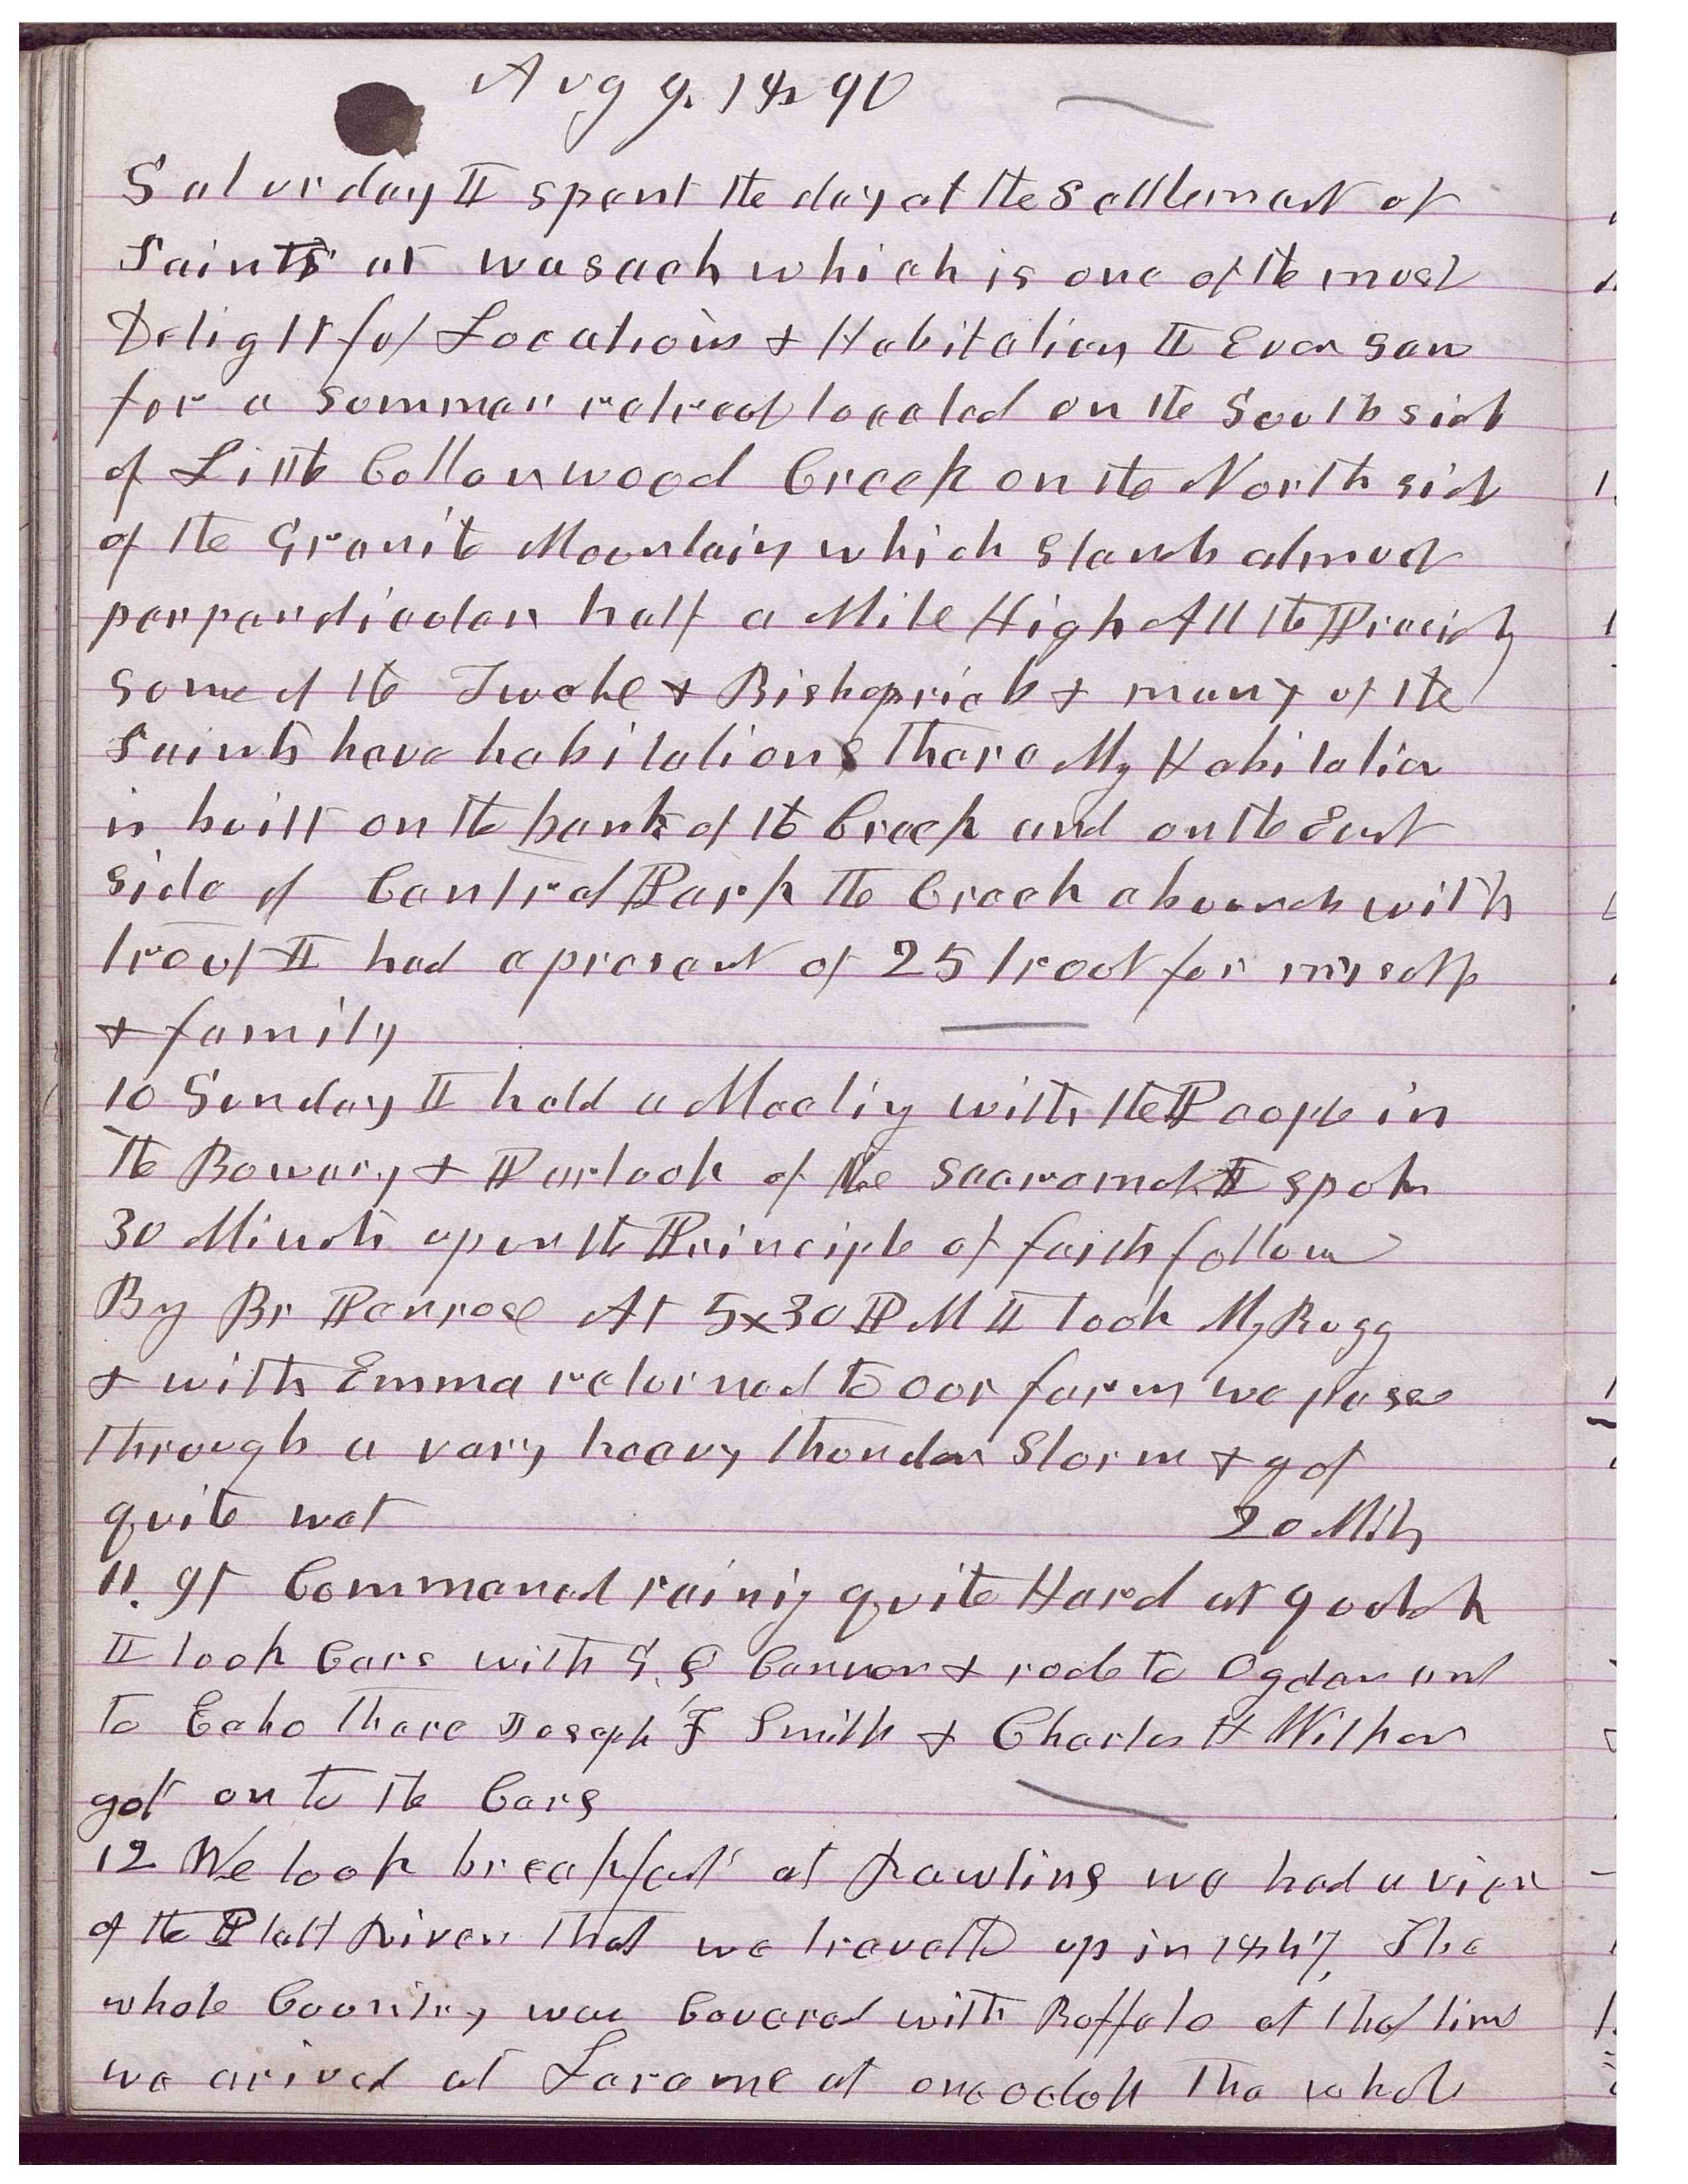 Aug 9, 1890
Saturday I spent the day at the Settlement of
Saints at wasach which is one of the most
Delightful Locations & Habitation I Ever saw
for a Summer retreat located on the South side
of Little Cottonwood Creek on the North side
of the Granite Mountain which stands almost
perpendicular half a Mile High All the Preside
some of the Twelve & Bishoprick & many of the
Saints have habitations there My Habitation
is built on the bank of the Creek and on the East
side of Central Park The Creek abounds with
trout I had a present of 25 trout for myself
& family
10 Sunday I held a Meeting with the People in
the Bowery & Partook of the Sacrament I spoke
30 Minuts upon the Principle of faith follow
By Br Penrose At 5x30 PM I took My Bugg
& with Emma returned to our farm we passe
through a very heavy thunder Storm & got
quite wet 20 Mils
11. It Commenced rainig quite Hard at 9 oclok
I took Cars with G. Q Cannon & rode to Ogden and
to Echo there Joseph F Smith & Charles H Wilken
got on to the Cars
12 We took breakfast at Rawlins we had a view
of the Platt River that we travelled up in 1847, The
whole Country was Covered with Buffalo at that time
we arived at Larame at one oclok The whole